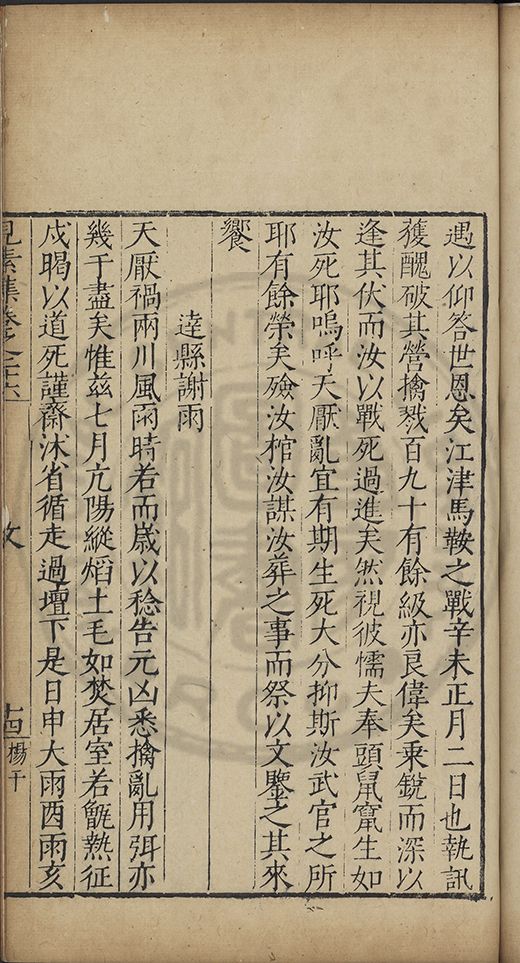 遇以仰答世恩矣江津馬鞍之戰辛未正月二日也執訊
獲醜破其營擒戮百九十有餘級亦良偉矣乗銳而深以
逢其伏而汝以戰死過進矣然視彼懦夫奉頭鼠竄生如
汝死耶嗚呼天厭亂宜有期生死大分抑斯汝武官之所
耶有餘榮矣殮汝棺汝謀汝葬之事而祭以文鑒之其來
饗
逹縣謝雨
天厭禍兩川風雨時若而嵗以稔告元凶悉擒亂用弭亦
幾于盡矣惟兹七月亢陽縱熖土毛如焚居室若甑熱征
戍暍以道死謹齋沐省循走過壇下是日申大雨酉雨亥
見素集卷之二十六
文
十四
楊干